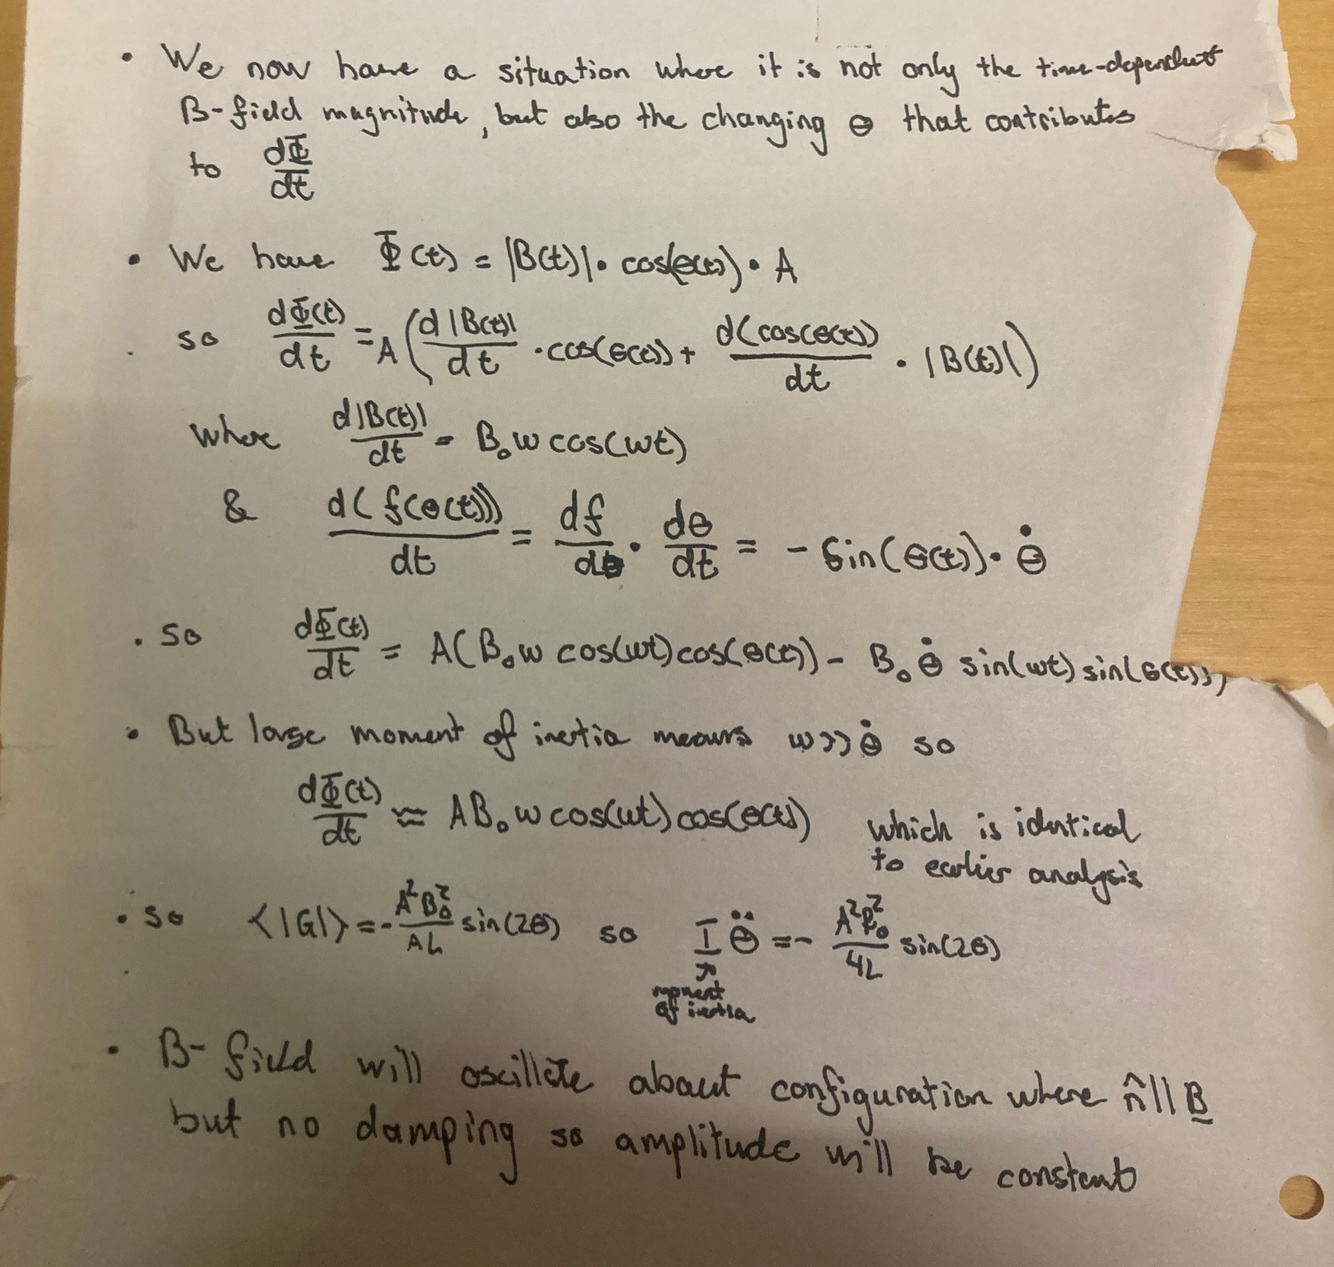 • We now have a situation where it is not only the time-dependent
B-field magnitude, but also the changing θ that contributes
to dΦ/dt
• We have Φ(t) = |B(t)| • cos(θ(t)) • A
so dΦ(t)/dt = A(d|B(t)|/dt • cos(θ(t)) + d(cos(θ(t))/dt • |B(t)|)
where d|B(t)|/dt = B₀ω cos(ωt)
& d(f(θ(t)))/dt = df/dθ • dθ/dt = - sin(θ(t)) • θ̇
• So dΦ(t)/dt = A(B₀ω cos(ωt)cos(θ(t)) - B₀ θ̇ sin(ωt) sin(θ(t)))
• But large moment of inertia means ω>>θ̇ so
dΦ(t)/dt ≈ AB₀ω cos(ωt)cos(θ(t)) which is identical
to earlier analysis
• so <|G|> = - A²B₀²/4L sin(2θ) so I θ̈ = - A²B₀²/4L sin(2θ)
moment
of inertia
• B-field will oscillate about configuration where n̂ || B
but no damping so amplitude will be constant